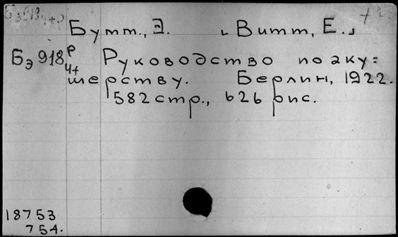 Бумм, Э. [Витт, Е.]
Бэ 918 р Руководство по аку=
4+ шерству. Берлин, 1922.
582 стр., 626 рис.
18753
754.